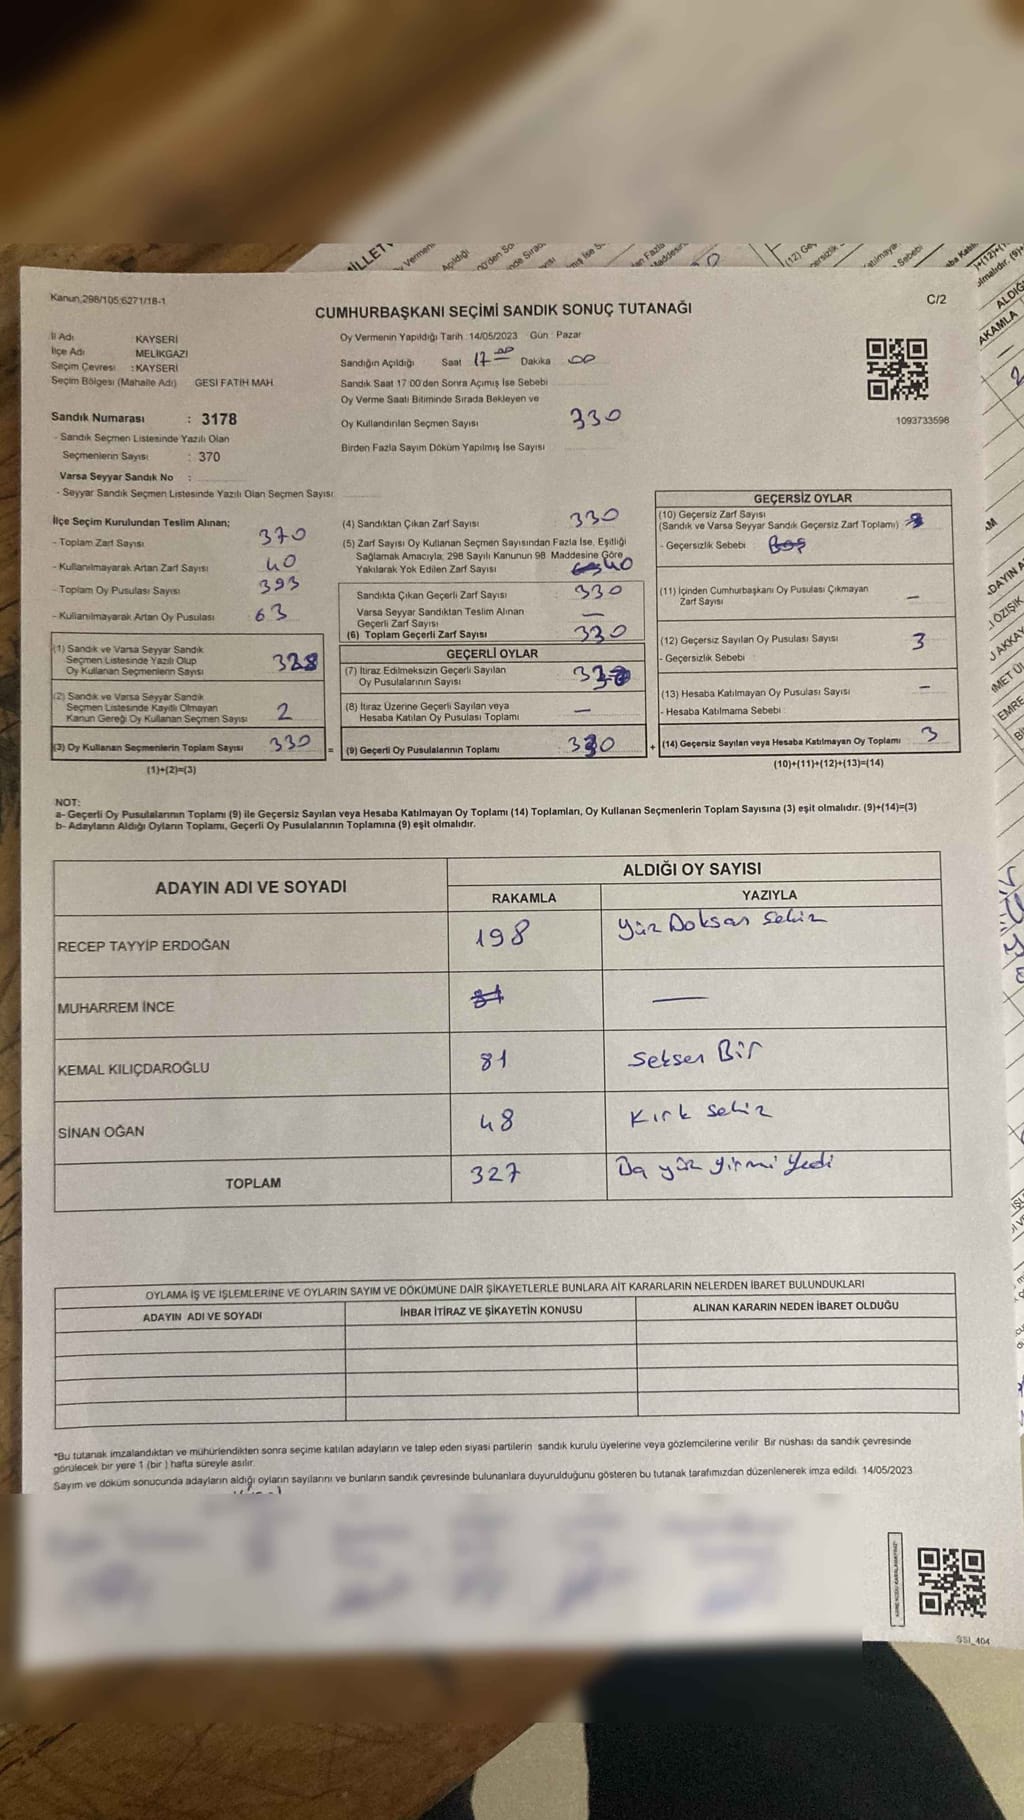 Kanun;298/105;6271/18-1
C/2
CUMHURBAŞKANI SEÇİMİ SANDIK SONUÇ TUTANAĞI
İl Adı : KAYSERİ
İlçe Adı : MELİKGAZİ
Seçim Çevresi : KAYSERİ
Seçim Bölgesi (Mahalle Adı) GESİ FATİH MAH.
Oy Vermenin Yapıldığı Tarih 14/05/2023 Gün Pazar
Sandığın Açıldığı Saat 17 00 Dakika 00
Sandık Saat 17:00'den Sonra Açılmış İse Sebebi
Oy Verme Saati Bitiminde Sırada Bekleyen ve
Oy Kullandırılan Seçmen Sayısı 330
Birden Fazla Sayım Döküm Yapılmış İse Sayısı
1093733598
Sandık Numarası : 3178
- Sandık Seçmen Listesinde Yazılı Olan
Seçmenlerin Sayısı : 370
Varsa Seyyar Sandık No :
- Seyyar Sandık Seçmen Listesinde Yazılı Olan Seçmen Sayısı
İlçe Seçim Kurulundan Teslim Alınan;
- Toplam Zarf Sayısı 370
- Kullanılmayarak Artan Zarf Sayısı 40
- Toplam Oy Pusulası Sayısı 393
- Kullanılmayarak Artan Oy Pusulası 63
(1) Sandık ve Varsa Seyyar Sandık
Seçmen Listesinde Yazılı Olup
Oy Kullanan Seçmenlerin Sayısı 328
(2) Sandık ve Varsa Seyyar Sandık
Seçmen Listesinde Kayıtlı Olmayan
Kanun Gereği Oy Kullanan Seçmen Sayısı 2
(3) Oy Kullanan Seçmenlerin Toplam Sayısı 330
(1)+(2)=(3)
(4) Sandıktan Çıkan Zarf Sayısı 330
(5) Zarf Sayısı Oy Kullanan Seçmen Sayısından Fazla İse, Eşitliği
Sağlamak Amacıyla, 298 Sayılı Kanunun 98. Maddesine Göre
Yakılarak Yok Edilen Zarf Sayısı 40
Sandıkta Çıkan Geçerli Zarf Sayısı 330
Varsa Seyyar Sandıktan Teslim Alınan
Geçerli Zarf Sayısı —
(6) Toplam Geçerli Zarf Sayısı 330
GEÇERLİ OYLAR
(7) İtiraz Edilmeksizin Geçerli Sayılan
Oy Pusulalarının Sayısı
(8) İtiraz Üzerine Geçerli Sayılan veya
Hesaba Katılan Oy Pusulası Toplamı —
= (9) Geçerli Oy Pusulalarının Toplamı 330
GEÇERSİZ OYLAR
(10) Geçersiz Zarf Sayısı
(Sandık ve Varsa Seyyar Sandık Geçersiz Zarf Toplamı)
- Geçersizlik Sebebi : Boş
(11) İçinden Cumhurbaşkanı Oy Pusulası Çıkmayan
Zarf Sayısı —
(12) Geçersiz Sayılan Oy Pusulası Sayısı 3
- Geçersizlik Sebebi :
(13) Hesaba Katılmayan Oy Pusulası Sayısı —
- Hesaba Katılmama Sebebi :
+ (14) Geçersiz Sayılan veya Hesaba Katılmayan Oy Toplamı 3
(10)+(11)+(12)+(13)=(14)
NOT:
a- Geçerli Oy Pusulalarının Toplamı (9) ile Geçersiz Sayılan veya Hesaba Katılmayan Oy Toplamı (14) Toplamları, Oy Kullanan Seçmenlerin Toplam Sayısına (3) eşit olmalıdır. (9)+(14)=(3)
b- Adayların Aldığı Oyların Toplamı, Geçerli Oy Pusulalarının Toplamına (9) eşit olmalıdır.
ADAYIN ADI VE SOYADI ALDIĞI OY SAYISI
RAKAMLA YAZIYLA
RECEP TAYYİP ERDOĞAN 198 Yüz Doksan Sekiz
MUHARREM İNCE 81 —
KEMAL KILIÇDAROĞLU 81 Seksen Bir
SİNAN OĞAN 48 Kırk Sekiz
TOPLAM 327 yüz yirmi Yedi
OYLAMA İŞ VE İŞLEMLERİNE VE OYLARIN SAYIM VE DÖKÜMÜNE DAİR ŞİKAYETLERLE BUNLARA AİT KARARLARIN NELERDEN İBARET BULUNDUKLARI
ADAYIN ADI VE SOYADI İHBAR İTİRAZ VE ŞİKAYETİN KONUSU ALINAN KARARIN NEDEN İBARET OLDUĞU
*Bu tutanak imzalandıktan ve mühürlendikten sonra seçime katılan adayların ve talep eden siyasi partilerin sandık kurulu üyelerine veya gözlemcilerine verilir. Bir nüshası da sandık çevresinde
görülecek bir yere 1 (bir) hafta süreyle asılır.
Sayım ve döküm sonucunda adayların aldığı oyların sayılarını ve bunların sandık çevresinde bulunanlara duyurulduğunu gösteren bu tutanak tarafımızdan düzenlenerek imza edildi. 14/05/2023
SSI_404